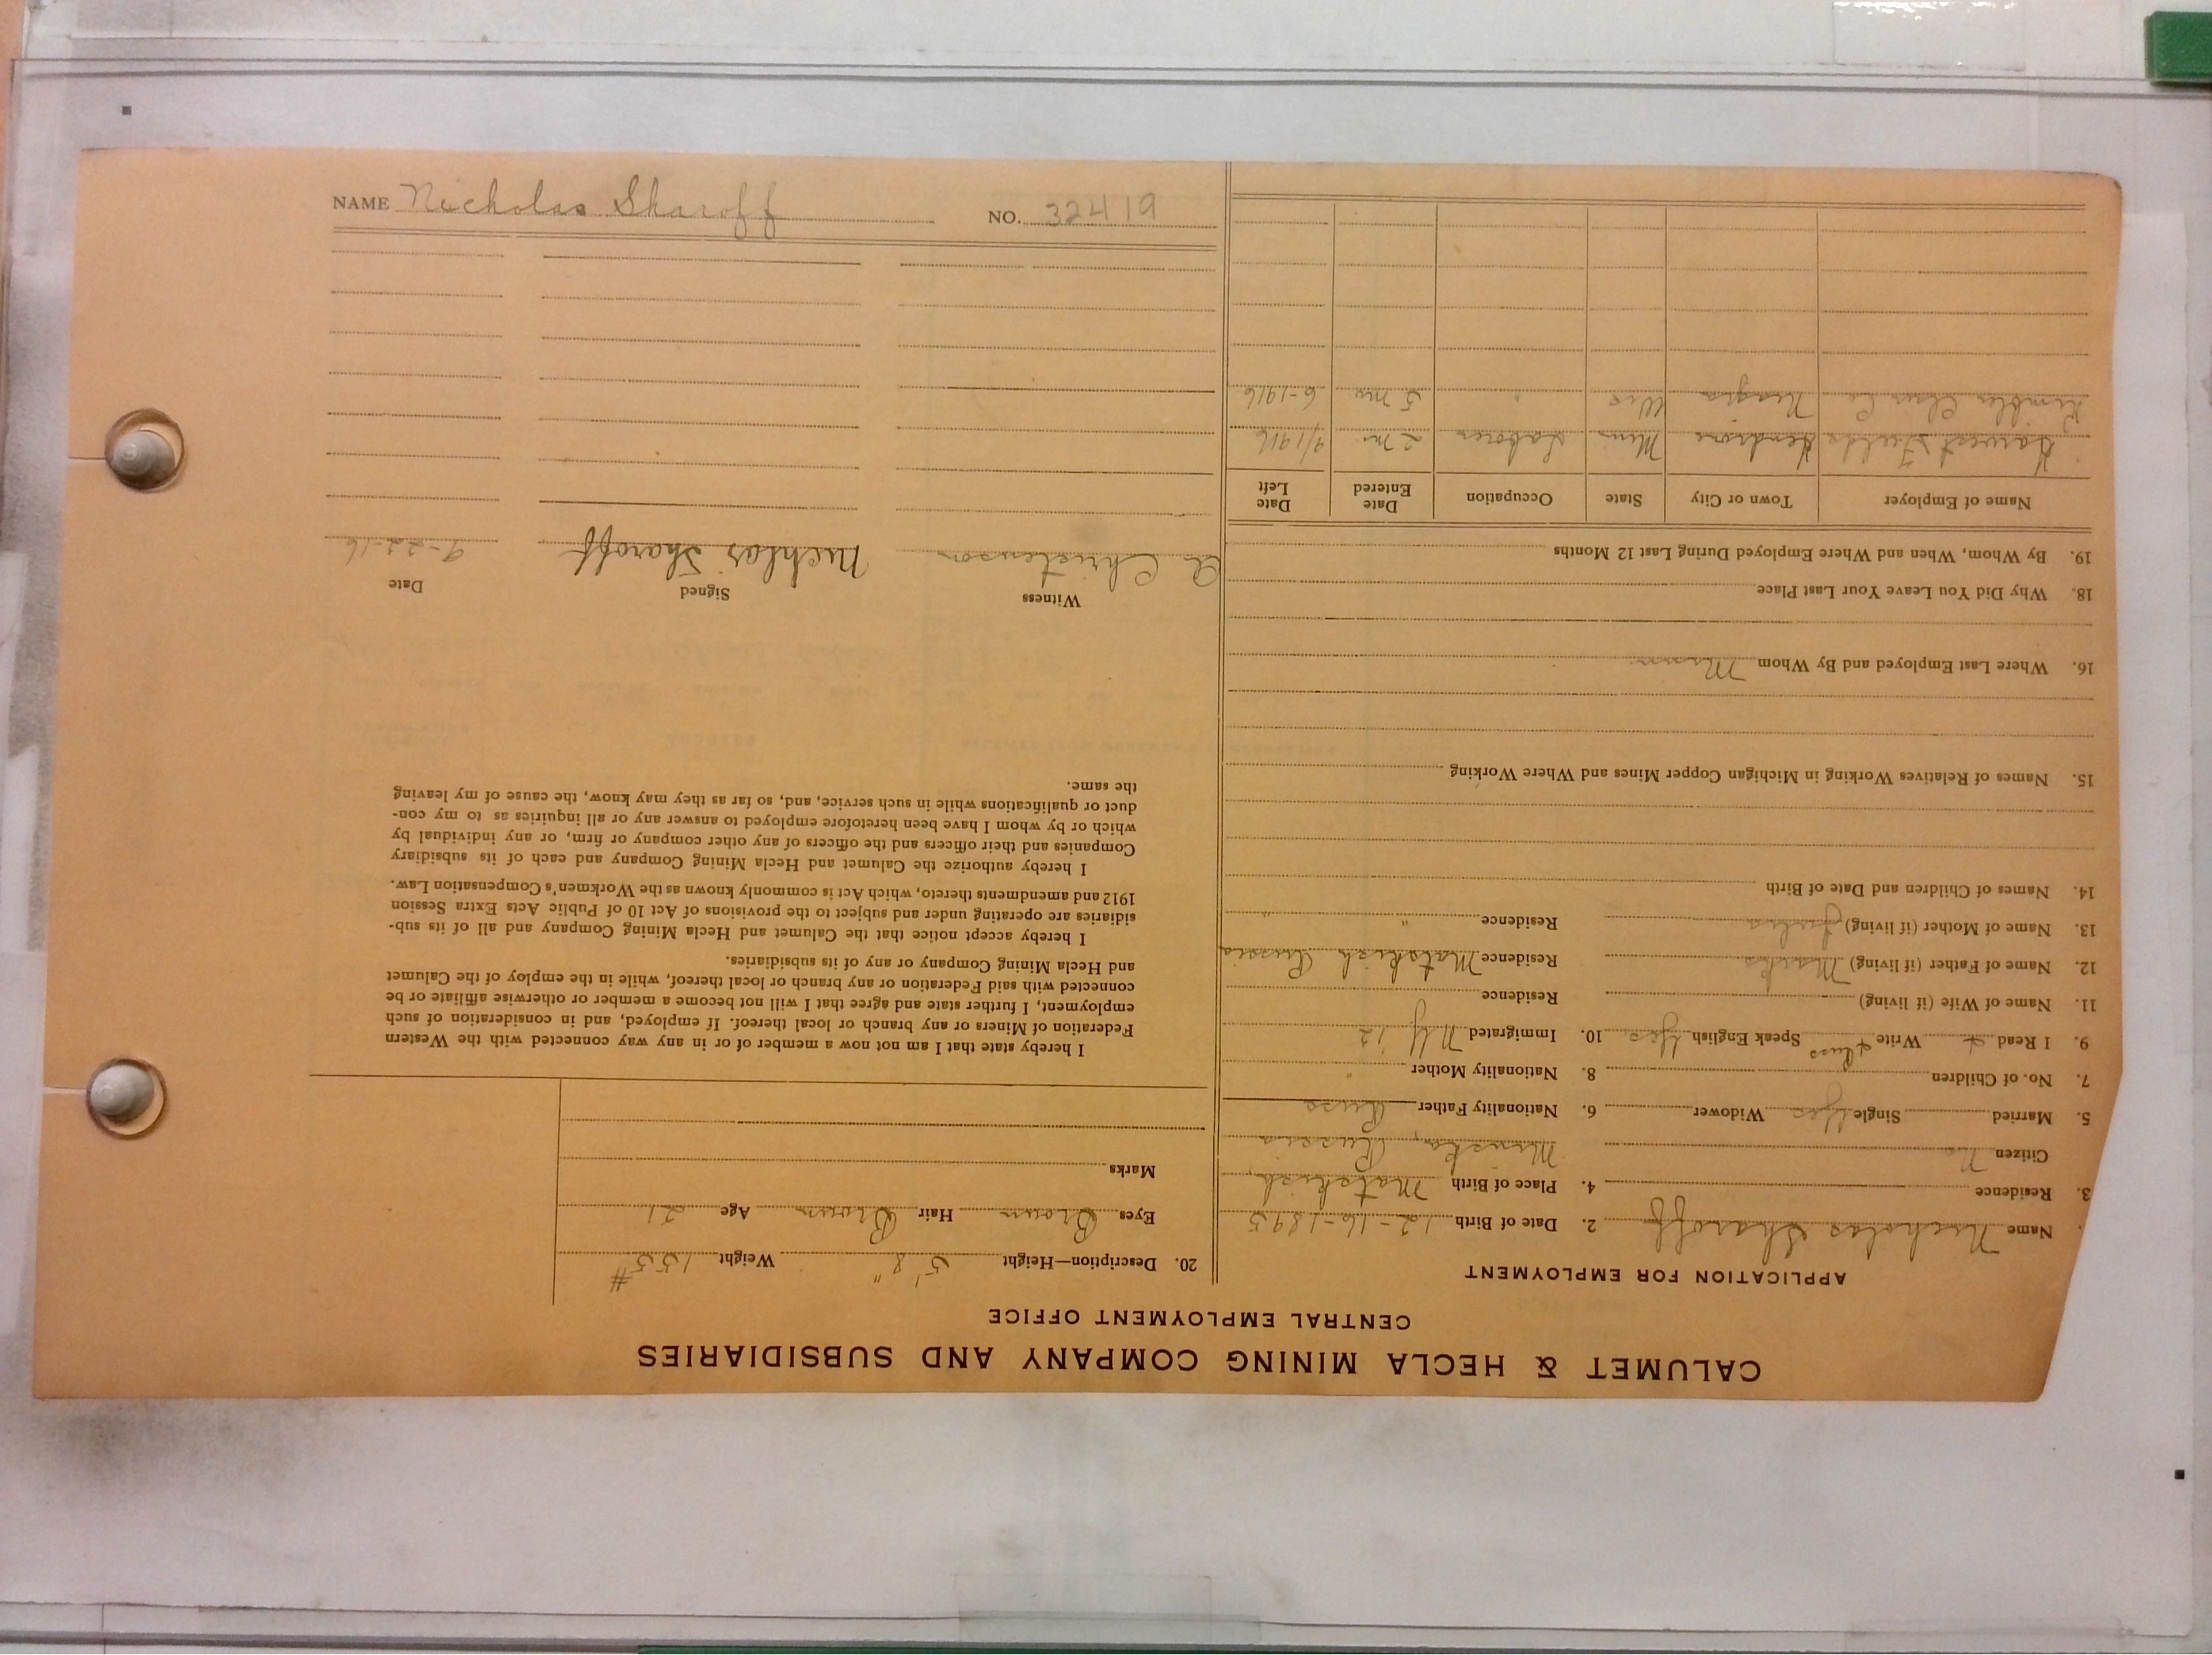 NAME Nicholas Sharoff NO. 32419
CALUMET & HECLA MINING COMPANY AND SUBSIDIARIES
CENTRAL EMPLOYMENT OFFICE
APPLICATION FOR EMPLOYMENT
Name Nicholas Sharoff 2. Date of Birth 12-16-1895
3. Residence 4. Place of Birth Matskish,
Citizen No Minsko, Russia
5. Married Single Yes Widower 6. Nationality Father Russ
7. No. of Children 8. Nationality Mother "
9. I Read & Write & Russ Speak English Yes 10. Immigrated N Y 12
11. Name of Wife (if living) Residence
12. Name of Father (if living) Residence Matskish Russia
13. Name of Mother (if living) Julia Residence " "
14. Names of Children and Date of Birth
15. Names of Relatives Working in Michigan Copper Mines and Where Working
16. Where Last Employed and By Whom
18. Why Did You Leave Your Last Place
19. By Whom, When and Where Employed During Last 12 Months
Name of Employer Town or City State Occupation Date Entered Date Left
Harvest Fields Minn Laborer 2 mo 9/1916
Kimbler Clark Co Niagra Wis " 5 mo 6-1916
20. Description—Height 5' 8" Weight 155#
Eyes Brown Hair Brown Age 21
Marks
I hereby state that I am not now a member of or in any way connected with the Western
Federation of Miners or any branch or local thereof. If employed, and in consideration of such
employment, I further state and agree that I will not become a member or otherwise affiliate or be
connected with said Federation or any branch or local thereof, while in the employ of the Calumet
and Hecla Mining Company or any of its subsidiaries.
I hereby accept notice that the Calumet and Hecla Mining Company and all of its sub-
sidiaries are operating under and subject to the provisions of Act 10 of Public Acts Extra Session
1912 and amendments thereto, which Act is commonly known as the Workmen's Compensation Law.
I hereby authorize the Calumet and Hecla Mining Company and each of its subsidiary
Companies and their officers and the officers of any other company or firm, or any individual by
which or by whom I have been heretofore employed to answer any or all inquiries as to my con-
duct or qualifications while in such service, and, so far as they may know, the cause of my leaving
the same.
Witness Signed Date
A Christenson Nichlas Sharoff 9-22-16